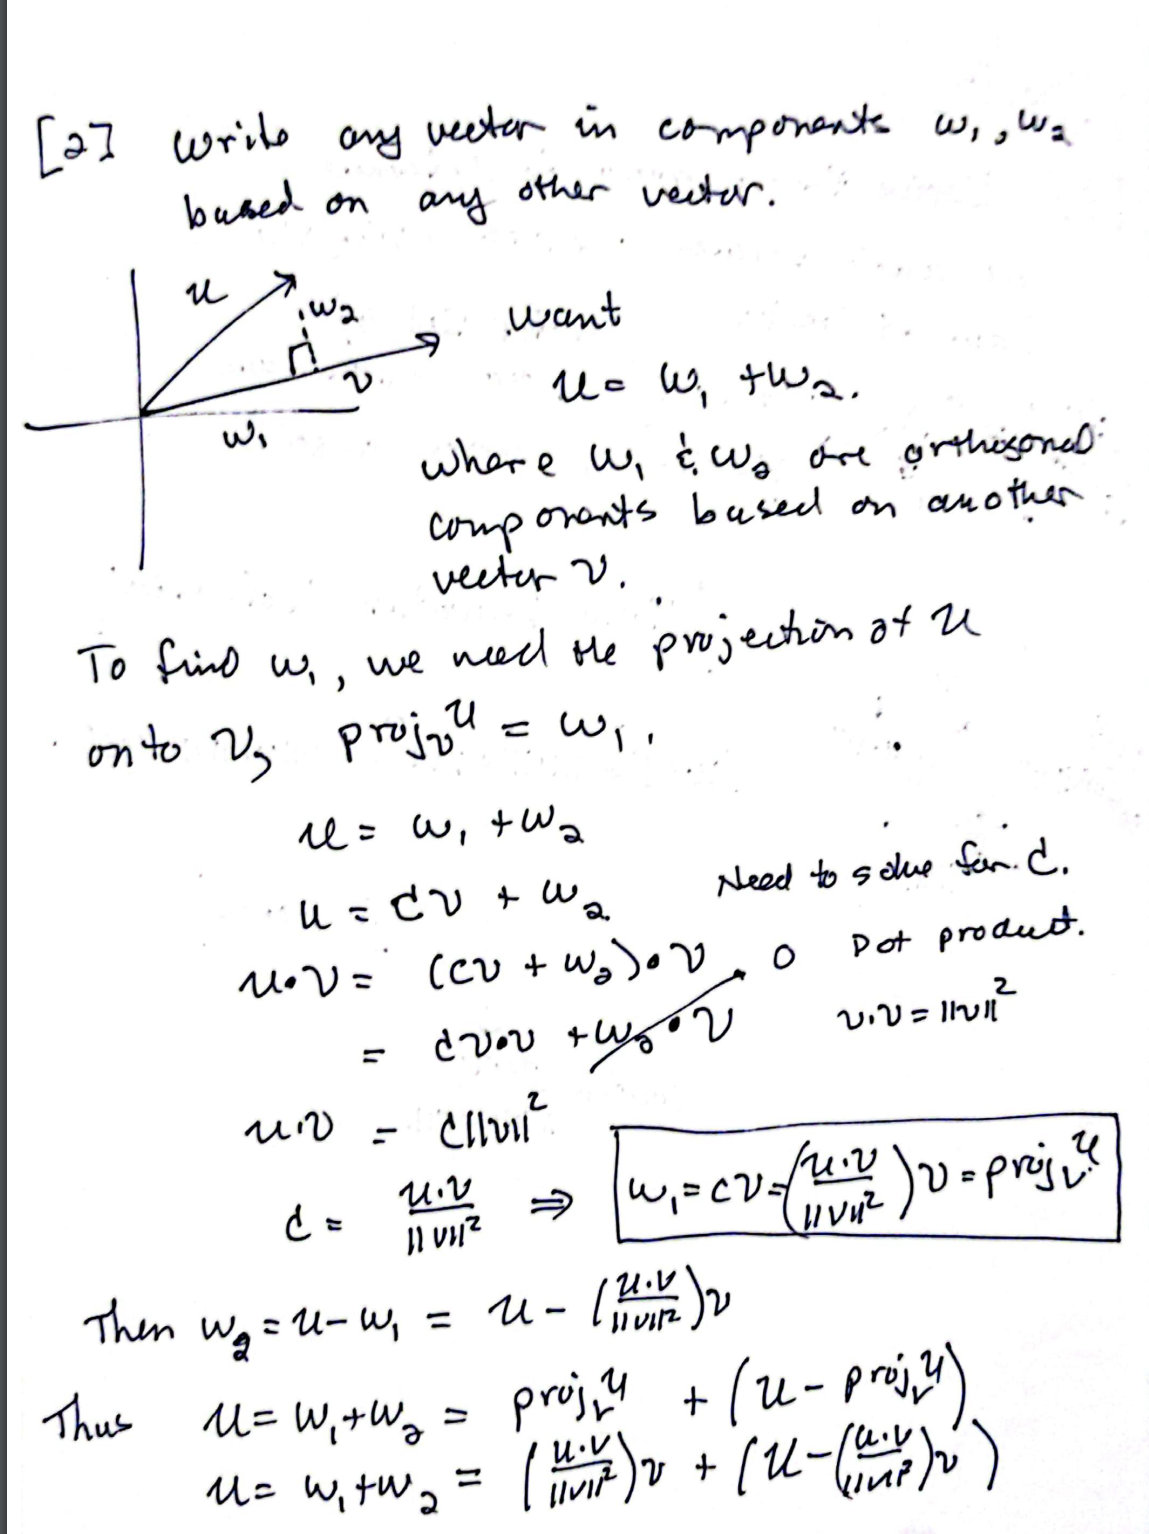 [2] Write any vector in components w₁, w₂
based on any other vector.
u
w₂
v
w₁
want
u = w₁ + w₂.
where w₁ & w₂ are orthogonal
components based on another
vector v.
To find w₁, we need the projection of u
onto v, proj_v u = w₁.
u = w₁ + w₂
u = cv + w₂ Need to solve for c.
u·v = (cv + w₂)·v 0 Dot product.
= cv·v + w₂·v v·v = ||v||²
u·v = c||v||²
c = u·v / ||v||² ⇒ w₁ = cv = (u·v / ||v||²) v = proj_v u
Then w₂ = u - w₁ = u - (u·v / ||v||²) v
Thus u = w₁ + w₂ = proj_v u + (u - proj_v u)
u = w₁ + w₂ = (u·v / ||v||²) v + (u - (u·v / ||v||²) v)